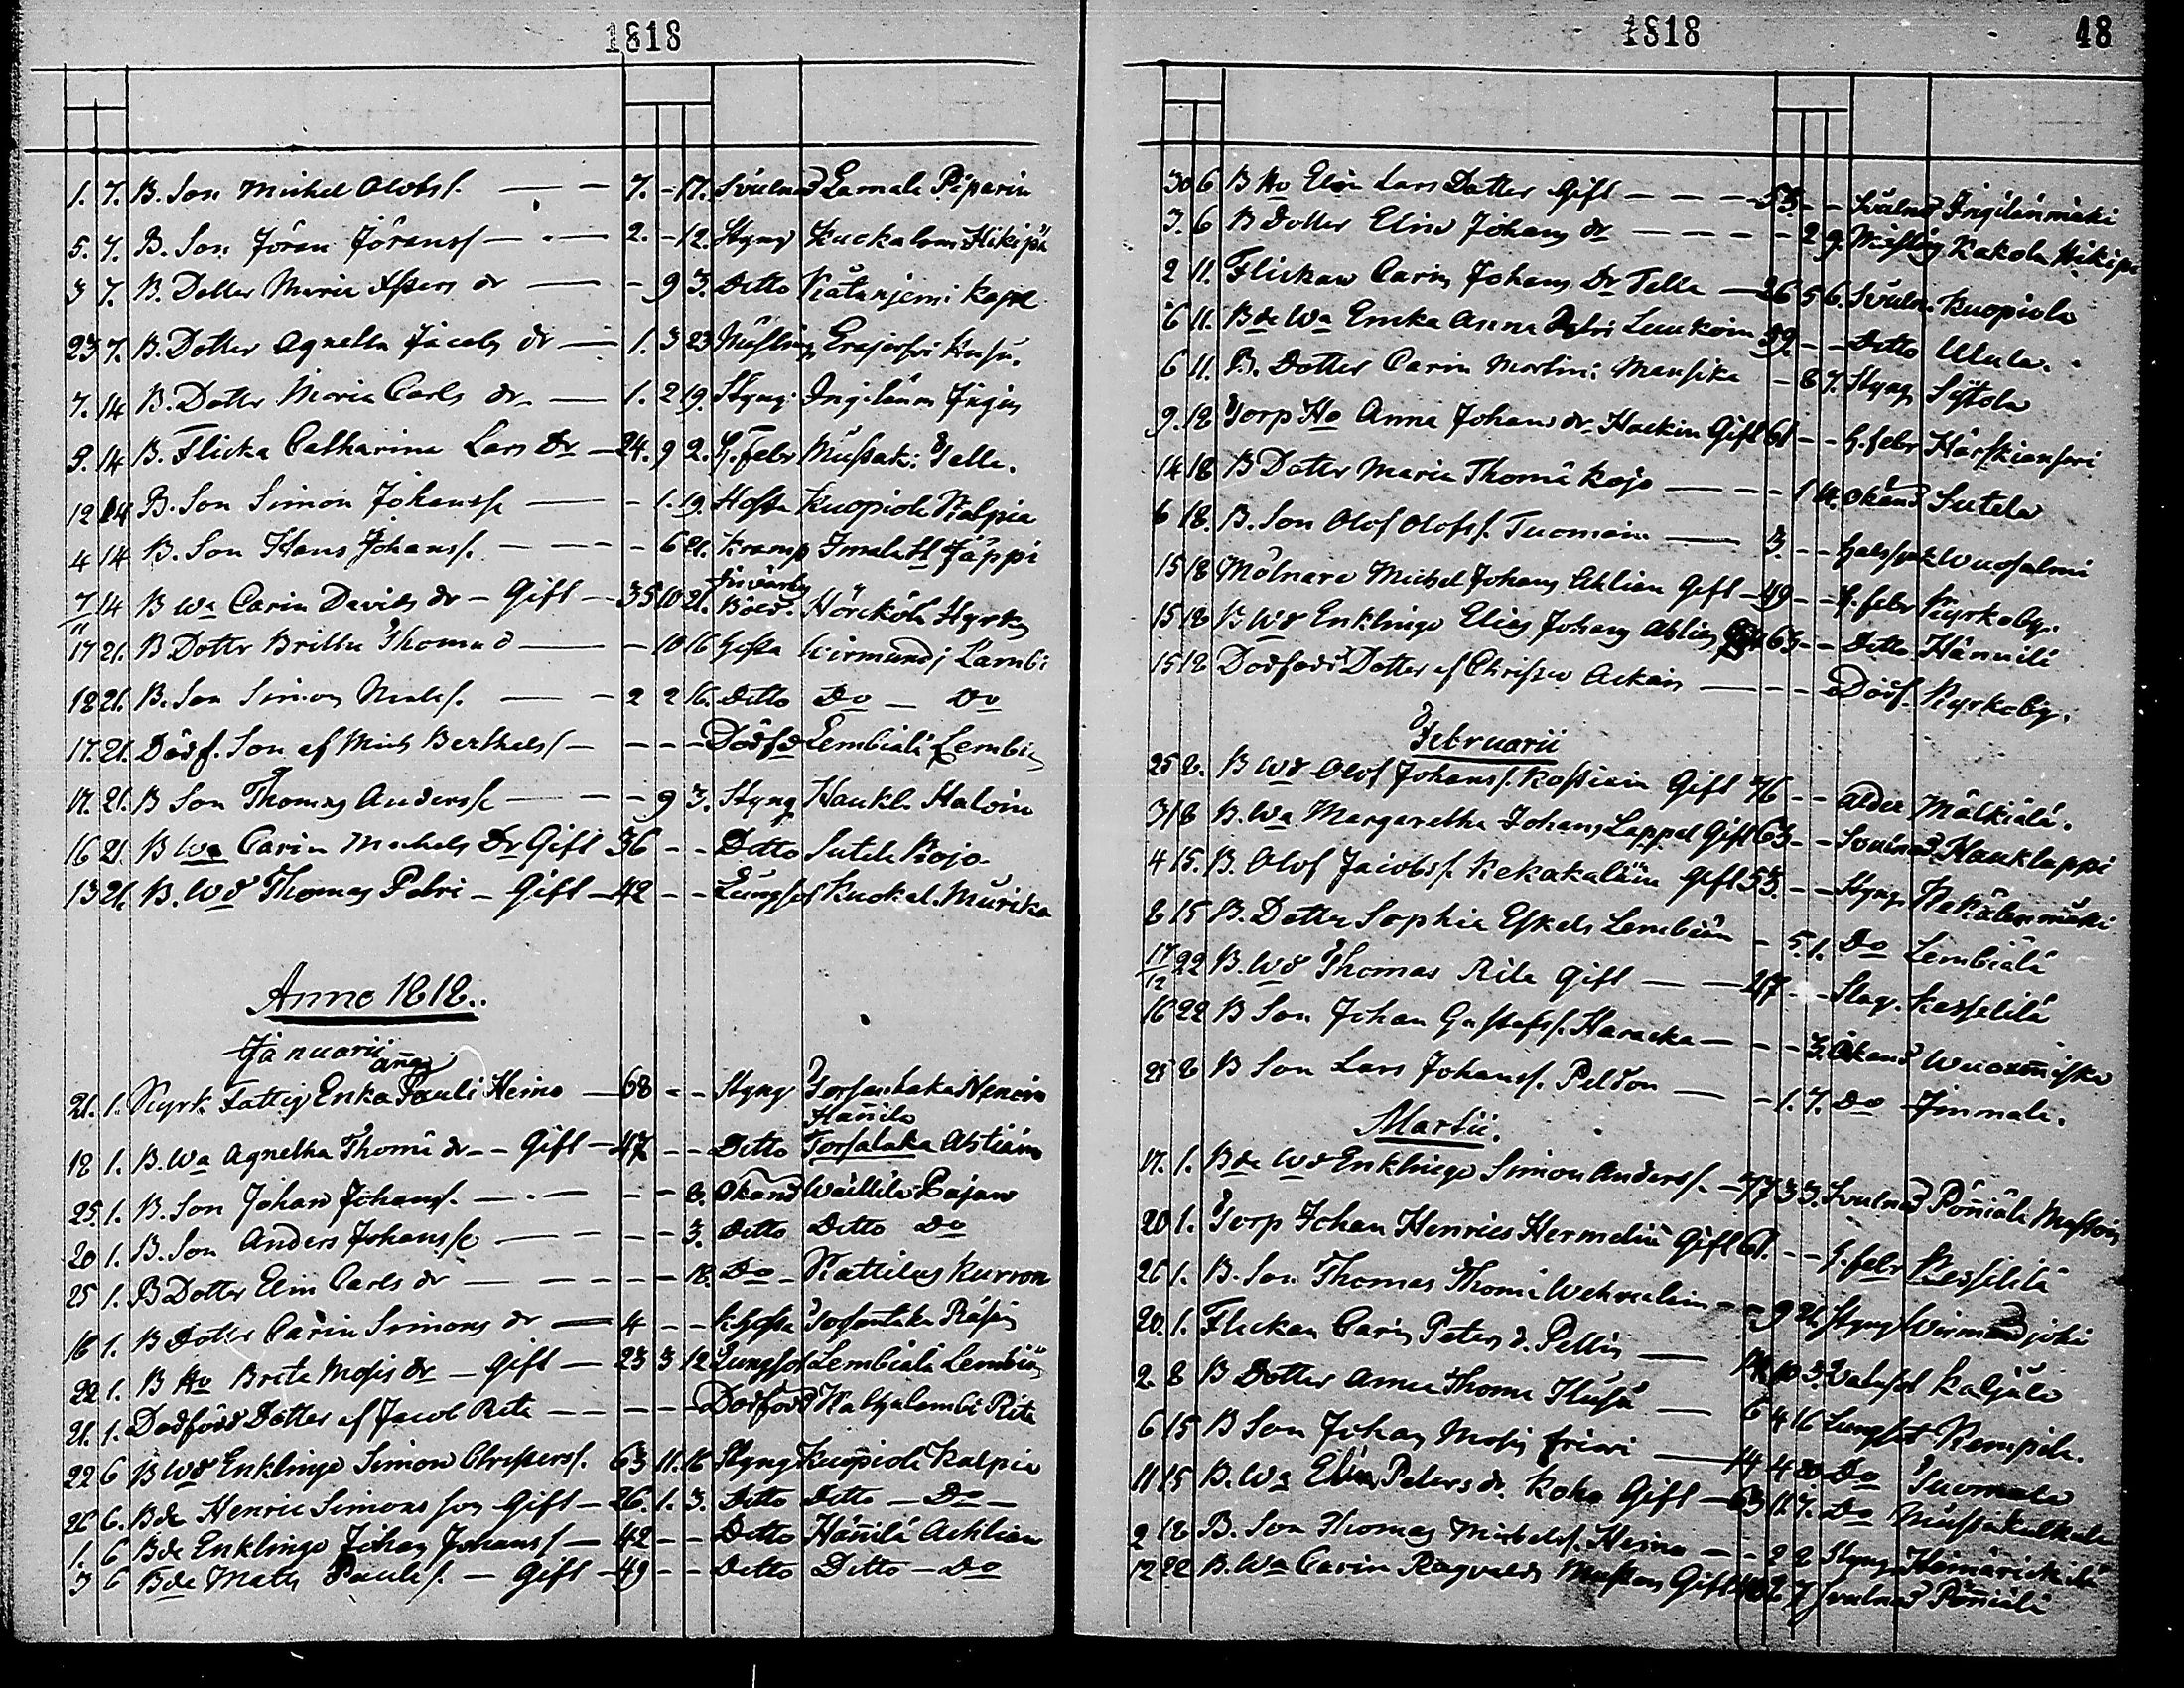 1818
1. 7. B. Son Michel Olofss. — — 7. - 17. Svulnad Lamala Piparin
5. 7. B. Son Jöran Jöranss — — 2. - 12. Styng Kuckalam Hikipä
3 7. B. Dotter Maria Espers dr — - 9 3. Ditto Rätänjemi Kapr
23 7. B. Dotter Agnetha Jacobs dr — 1. 3 23 Mässling Erajerfvi Husu.
7. 14 B. Dotter Maria Carls dr. — 1. 2 19. Styng Ingiläum Jngin
9. 14 B. Flicka Catharina Lars Dr — 24. 9 2. H. febr Mussak: Talla.
12 14 B. Son Simon Johanss — - 1. 19. Hosta Kuopiola Kalpia
4 14 B. Son Hans Johanss. — — - 6 21. Kramp Imala H Jäppi
7/11 14 B Wa Carin Davids dr — Gift — 35 10 21. Invärtes Böld. Hörckölä Hyrky
17 21. B Dotter Britha Thomæ d — - 10 16 Hosta Wirmundj Lambi
18 21. B. Son Simon Matss. — — 2 2 16. Ditto Do — Do
17. 21. Dödf. Son af Mich Berthelss — - - - Dödfd Lembiälä Lembiä
17. 21. B Son Thomas Anderss — — - 9 3. Styng Haukl. Haloin
16 21. B Wa Carin Michels Dr Gift 36 - - Ditto Sutela Kojo
13 21. B. Wd Thomas Petri — Gift — 42 - - Lungsot Kuokal. Murika
Anno 1818.
Januarii
21. 1. Kyrk Fattig Enka Anna Pauli Heino — 68 - - Styng Torsanhaka Nenoin
Hannila
18 1. B. Wa Agnetha Thomæ dr — Gift — 47 - - Ditto Torsalaka Abtiain
25. 1. B. Son Johan Johanss. — — - - 8. Okänd Waittila Pajan
20 1. B. Son Anders Johanss — — - - 3. Ditto Ditto Do
25 1. B Dotter Elin Carls dr — — - - 18. Do Kattilus Kurron
16 1. B Dotter Carin Simons dr — 4 - - K. Hosta Torsantaka Räsin
22 1. B Ho Breta Mosis dr — Gift — 23 3 12 Lungsot Lembiälä Lembiä
21. 1. Dödfödd Dotter af Jacob Rita — - - - Dödfödd Kattalambi Rita
22 6 B Wd Enklinge Simon Christerss. 63 11. 16 Styng Kuopiola Kalpia
26 6. Bde Henric Simons son Gift — 26. 1. 3. Ditto Ditto — Do —
1. 6 Bde Enklinge Johan Johanss — 42 - - Ditto Hänilä Achlian
3 6 Bde Mats Paulss. — Gift — 49 - - Ditto Ditto — Do
1818 48
30 6 B Ho Elin Lars Dotter Gift — — 53 - - Svulnad Ingiläinmäki
3. 6 B Dotter Elin Johans dr — — - 2 9. Mässling Kakola Hikipä
2 11. Flickan Carin Johans Dr Talla — 26 5 6. Svuln. Kuopiola
6 11. Bde Wa Enka Anna Petri Luukoin 39. - - Ditto Ulula.
6 11. B. Dotter Carin Martini Mansika - 8 7. Styng Sÿtola
9. 12 Torp Ho Anna Johans dr. Hackin Gift 61 - - H. febr Härskiansari
14 18 B Dotter Maria Thomæ Kojo — — - 1 14. Okänd Sutela
6 18. B. Son Olof Olofss. Tuomain — 3. - - Halssjuk Wuosalmi
15 18 Mölnare Michel Johans Ahlian Gift — 49 - - H. febr Kyrkoby.
15 18 B Wd Enklinge Elias Johans Ahlian 63 - - Ditto Hännilä
15 18 Dödfödd Dotter af Christer Ackan — - - - Dödf. Kyrkoby.
Februarii
25 8. B Wd Olof Johanss. Kostiain Gift 76 - - Ålder Mälkiälä.
31 8 B. Wa Margaretha Johans Lappal Gift 63 - - Svulnad Hauklappi
4 15. B. Olof Jacobss. Kekakaläin Gift 53. - - Styng Kekälänmäki
8 15 B. Dotter Sophia Eskels Lembiän - 5. 1. Do Lembiälä
17/12 22 B. Wd Thomas Rita Gift — — 47 - - Slag. Kesselilä
16 22 B Son Johan Gustafss. Haracka — - - 3. Okänd Wuoxenniska
25 8 B Son Lars Johanss. Peldon — - 1. 7. Do Immala.
Martii.
17. 1. Bde Wd Enklinge Simon Anderss. — 77 3 3. Svulnad Pöniälä Mustoin
20 1. Torp Johan Henrics Hermelin Gift 61. - - H. febr Kesselilä
26 1. B. Son Thomas Thomæ Wehvilain - - 9 26. Styng Wirmandjoki
20. 1. Flickan Carin Peters d. Pellin — 10 3. Kaljula
2 8 B Dotter Anna Thomæ Husu — 6 4 16 Lungsot Rempilä.
6 15 B Son Johan Mosis friari — 14 4 20 Do Tuomala
11 15 B. Wa Elin Peters dr. Koho Gift — 63 11 7. Do Mussukalkala
2 18 B. Son Thomas Michelss. Heino — - 2 2 Styng Hämärickilä
12 22 B. Wa Carin Ragvalds Mustoin Gift 2 7 Svulnad Pöniälä